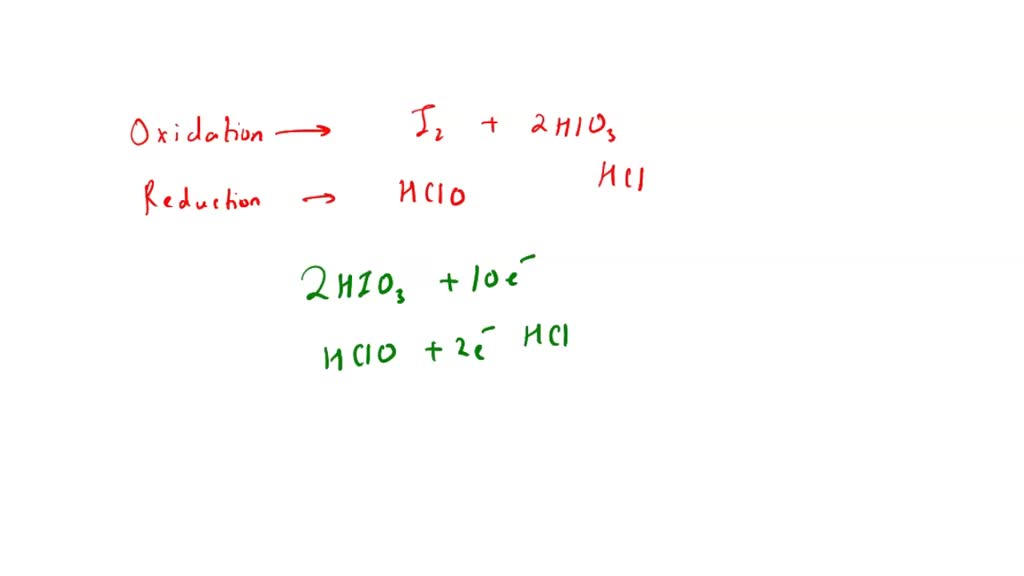 Oxidation → I₂ + 2HIO₃
Reduction → HClO HCl
2HIO₃ + 10e⁻
HClO + 2e⁻ HCl